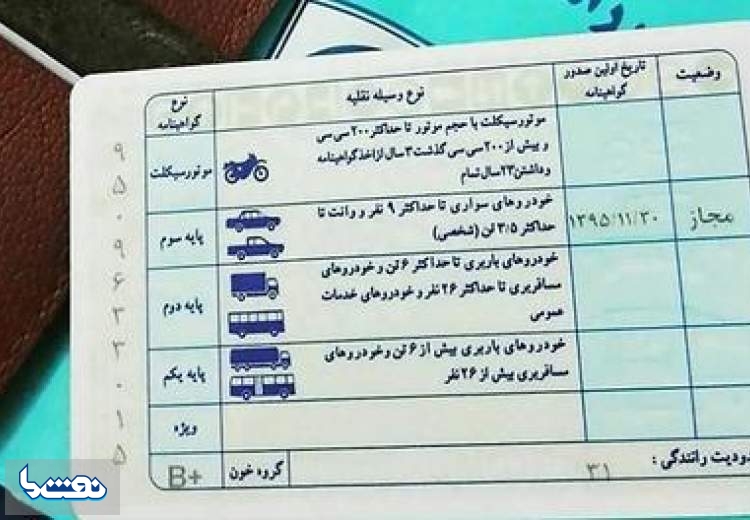 وضعیت
تاریخ اولین صدور
گواهینامه
نوع وسیله نقلیه
نوع
گواهینامه
موتورسیکلت با حجم موتور تا حداکثر ۲۰۰ سی سی
و بیش از ۲۰۰ سی سی گذشت ۳ سال از اخذ گواهینامه
و داشتن ۲۳ سال تمام
موتورسیکلت
مجاز
۱۳۹۵/۱۱/۳۰
خودروهای سواری تا حداکثر ۹ نفر و وانت تا
حداکثر ۳/۵ تن (شخصی)
پایه سوم
خودروهای باربری تا حداکثر ۶ تن و خودروهای
مسافربری تا حداکثر ۲۶ نفر و خودروهای خدمات
عمومی
پایه دوم
خودروهای باربری بیش از ۶ تن و خودروهای
مسافربری بیش از ۲۶ نفر
پایه یکم
ویژه
دودیت رانندگی :
۳۱
گروه خون
B+
۹
۵
۰
۹
۶
۳
۳
۰
۱
۵
نقش ما